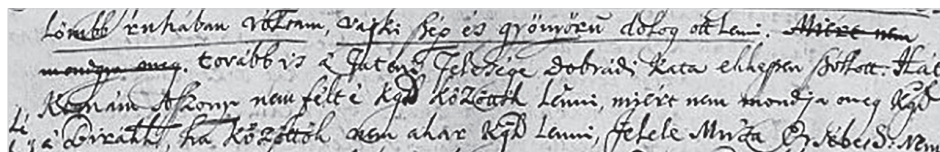 lömbb ruhában vóltam, vajki szép és gyönyörü dolog ott lenni. Miért nem
mondgya meg. továb is a Tutens felesége Dobrádi Kata ekheppen szóllott. Hát
Asszony nem félt é Kgd közöttök lenni, miért nem mondja meg Kgd
a ha közöttök nem akar Kgd lenni, felele Muza Ersébed: Nem